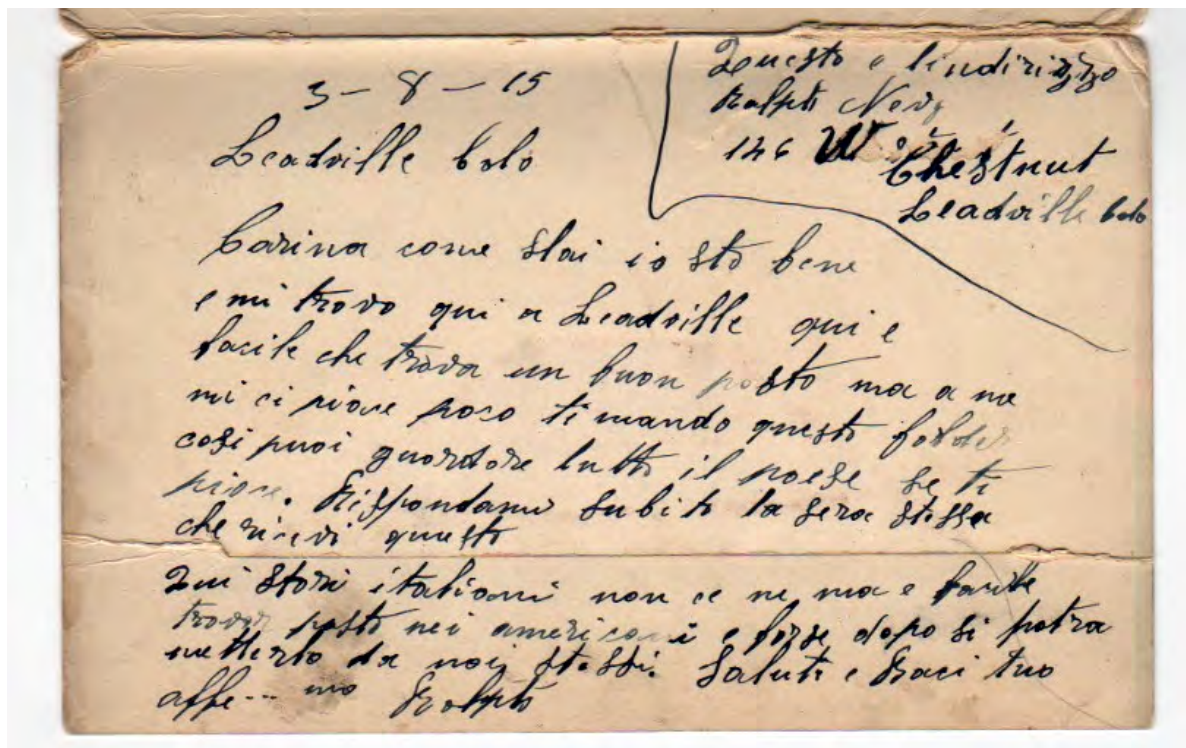 3 - 8 - 15
Leadville Colo
Questo e lindirizzo
Ralph
146 W.
Chestnut
Leadville Colo
Carina come stai io sto bene
e mi trovo qui a Leadville qui e
facile che trova un buon posto ma a me
mi ci piace poco ti mando questo folder
cosi puoi guardare tutto il paese se ti
piace. Rispondami subito la sera stessa
che ricevi questo
Qui stori italiani non ce ne ma e facile
trovar posto nei americani e forse dopo si potra
metterlo da noi stessi. Saluti e Baci tuo
affe--- mo Ralph